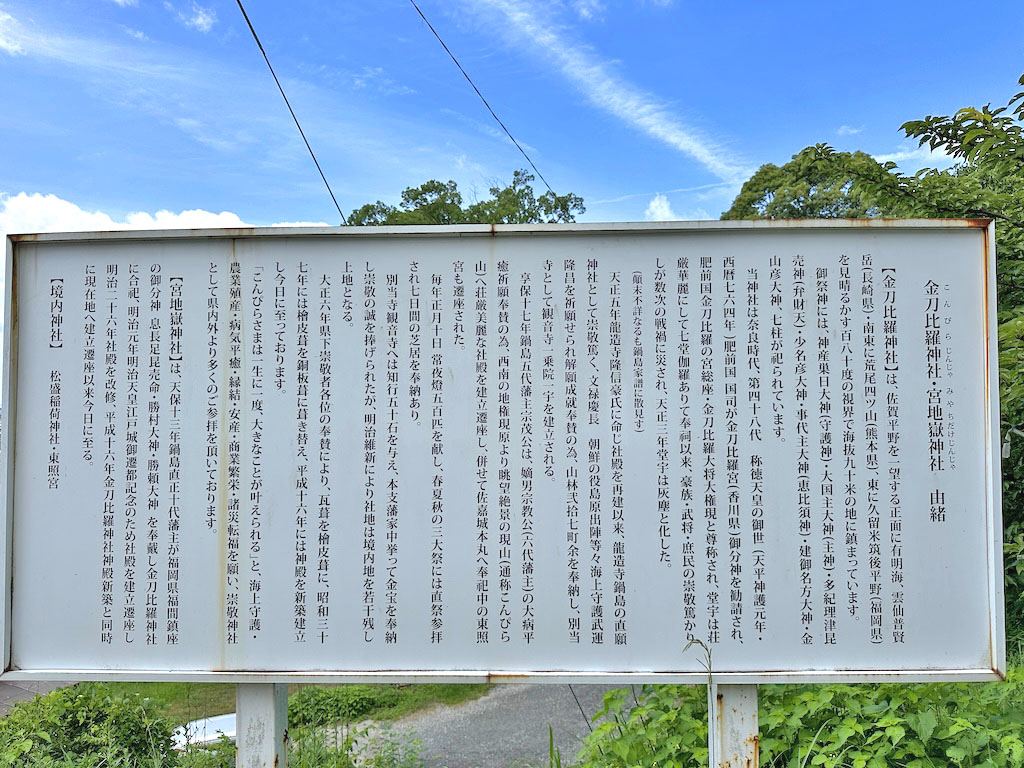 金刀比羅神社・宮地嶽神社　由緒
こんぴらじんじゃ　みやちだけじんじゃ
【金刀比羅神社】は、佐賀平野を一望する正面に有明海、雲仙普賢
岳(長崎県)・南東に荒尾四ツ山(熊本県)、東に久留米筑後平野(福岡県)
を見晴るかす百八十度の視界で海抜九十米の地に鎮まっています。
御祭神には、神産巣日大神(守護神)・大国主大神(主神)・多紀理津毘
売神(弁財天)・少名彦大神・事代主大神(恵比須神)・建御名方大神・金
山彦大神、七柱が祀られています。
当神社は奈良時代、第四十八代　称徳天皇の御世(天平神護元年・
西暦七六四年)肥前国 国司が金刀比羅宮(香川県)御分神を勧請され、
肥前国金刀比羅の宮総座・金刀比羅大将大権現と尊称され、堂宇は荘
厳華麗にして七堂伽羅ありて奉祠以来、豪族・武将・庶民の崇敬篤かり
しが数次の戦禍に災され、天正三年堂宇は灰塵と化した。
(顛末不詳なるも鍋島家譜に散見す)
天正五年龍造寺隆信豪氏に命じ社殿を再建以来、龍造寺鍋島の直願
神社として崇敬篤く、文禄慶長　朝鮮の役島原出陣等々海上守護武運
隆昌を祈願せられ解願成就奉賛の為、山林弐拾七町余を奉納し、別当
寺として観音寺一乗院一宇を建立される。
享保十七年鍋島五代藩主宗茂公は、嫡男宗教公(六代藩主)の大病平
癒祈願奉賛の為、西南の地権現原より眺望絶景の現山(通称こんぴら
山)へ荘厳美麗な社殿を建立遷座し、併せて佐嘉城本丸へ奉祀中の東照
宮も遷座された。
毎年正月十日 常夜燈五百匹を献し、春夏秋の三大祭には直祭参拝
され七日間の芝居を奉納あり。
別当寺観音寺へは知行五十石を与え、本支藩家中挙って金宝を奉納
し崇敬の誠を捧げられたが、明治維新により社地は境内地を若干残し
上地となる。
大正六年県下崇敬者各位の奉賛により、瓦葺を檜皮葺に、昭和三十
七年には檜皮葺を銅板葺に葺き替え、平成十六年には神殿を新築建立
し今日に至っております。
「こんぴらさまは一生に一度、大きなことが叶えられる」と、海上守護・
農業殖産・病気平癒・縁結・安産・商業繁栄・諸災転福を願い、崇敬神社
として県内外より多くのご参拝を頂いております。
【宮地嶽神社】は、天保十三年鍋島直正十代藩主が福岡県福間鎮座
の御分神 息長足昆売命・勝村大神・勝頼大神 を奉戴し金刀比羅神社
に合祀、明治元年明治天皇江戸城御遷都記念のため社殿を建立遷座し
明治二十六年社殿を改修、平成十六年金刀比羅神社神殿新築と同時
に現在地へ建立遷座以来今日に至る。
【境内神社】　松盛稲荷神社・東照宮